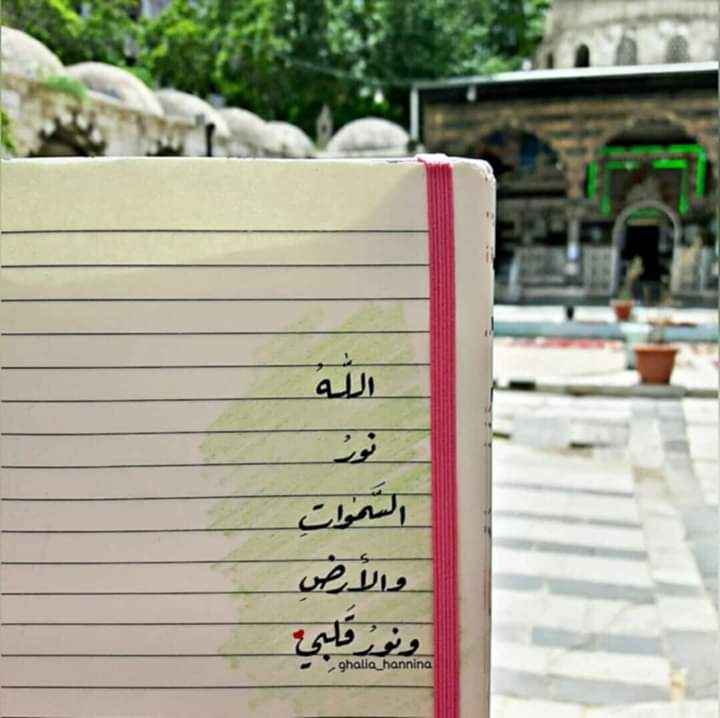 اللّٰهُ
نورُ
السَّمٰواتِ
والأرضِ
ونورُ قَلبِي
ghalia_hannina